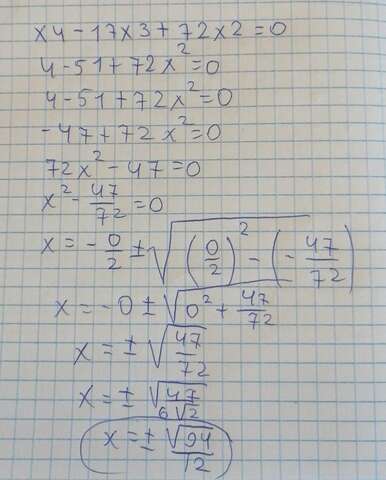 x4-17x3+72x2=0
4-51+72x²=0
4-51+72x²=0
-47+72x²=0
72x²-47=0
x²-47/72=0
x=-0/2±√((0/2)²-(-47/72))
x=-0±√(0²+47/72)
x=±√(47/72)
x=±√47/6√2
x=±√94/12